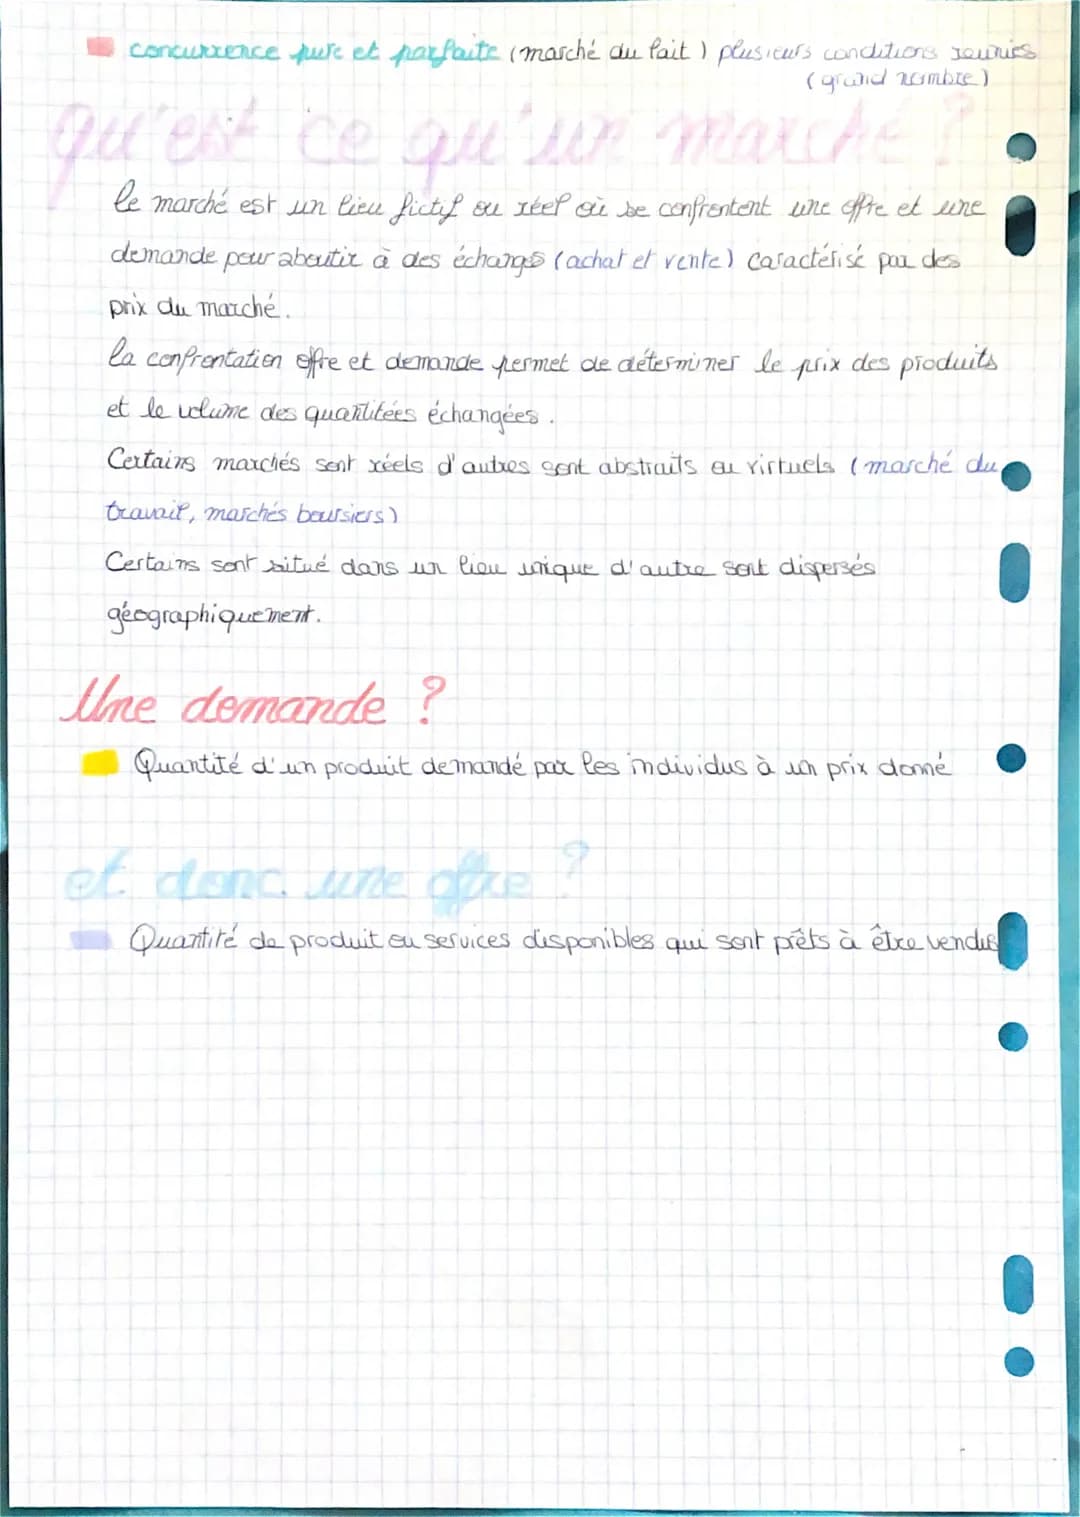 concurrence pure et parfaite (marché du lait) plusieurs conditions réunies
(grand nombre)
qu'est ce qu'un marché ?
le marché est un lieu fictif ou réel où se confrontent une offre et une
demande pour aboutir à des échanges (achat et vente) caractérisé par des
prix du marché.
la confrontation offre et demande permet de déterminer le prix des produits
et le volume des quantitées échangées.
Certains marchés sont réels d'autres sont abstraits ou virtuels (marché du
travail, marchés boursiers)
Certains sont situé dans un lieu unique d'autre sont dispersés
géographiquement.
Une demande ?
Quantité d'un produit demandé par les individus à un prix donné
et donc une offre ?
Quantité de produit ou services disponibles qui sont prêts à être vendus